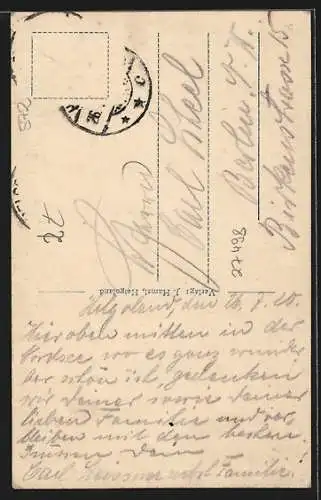 Herrn
Karl
Berlin N.W.
Birkenstrasse 15
Verlag: J. Hamzi, Helgoland
72
Helgoland, den 16.7.20.
Hier oben mitten in der
Nordsee wo es ganz wunder
bar schön ist, gedenken
wir Deiner sowie Deiner
lieben Familie und ver
bleiben mit den besten
Grüssen Dein
Carl nebst Familie!